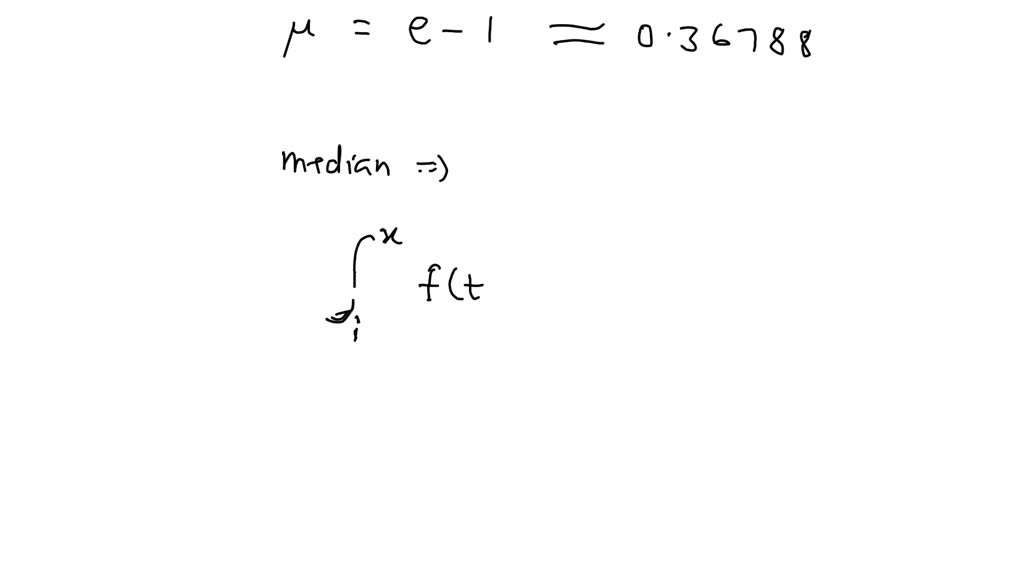 μ = e - 1 ≈ 0.36788
median =>
∫₁ˣ f(t